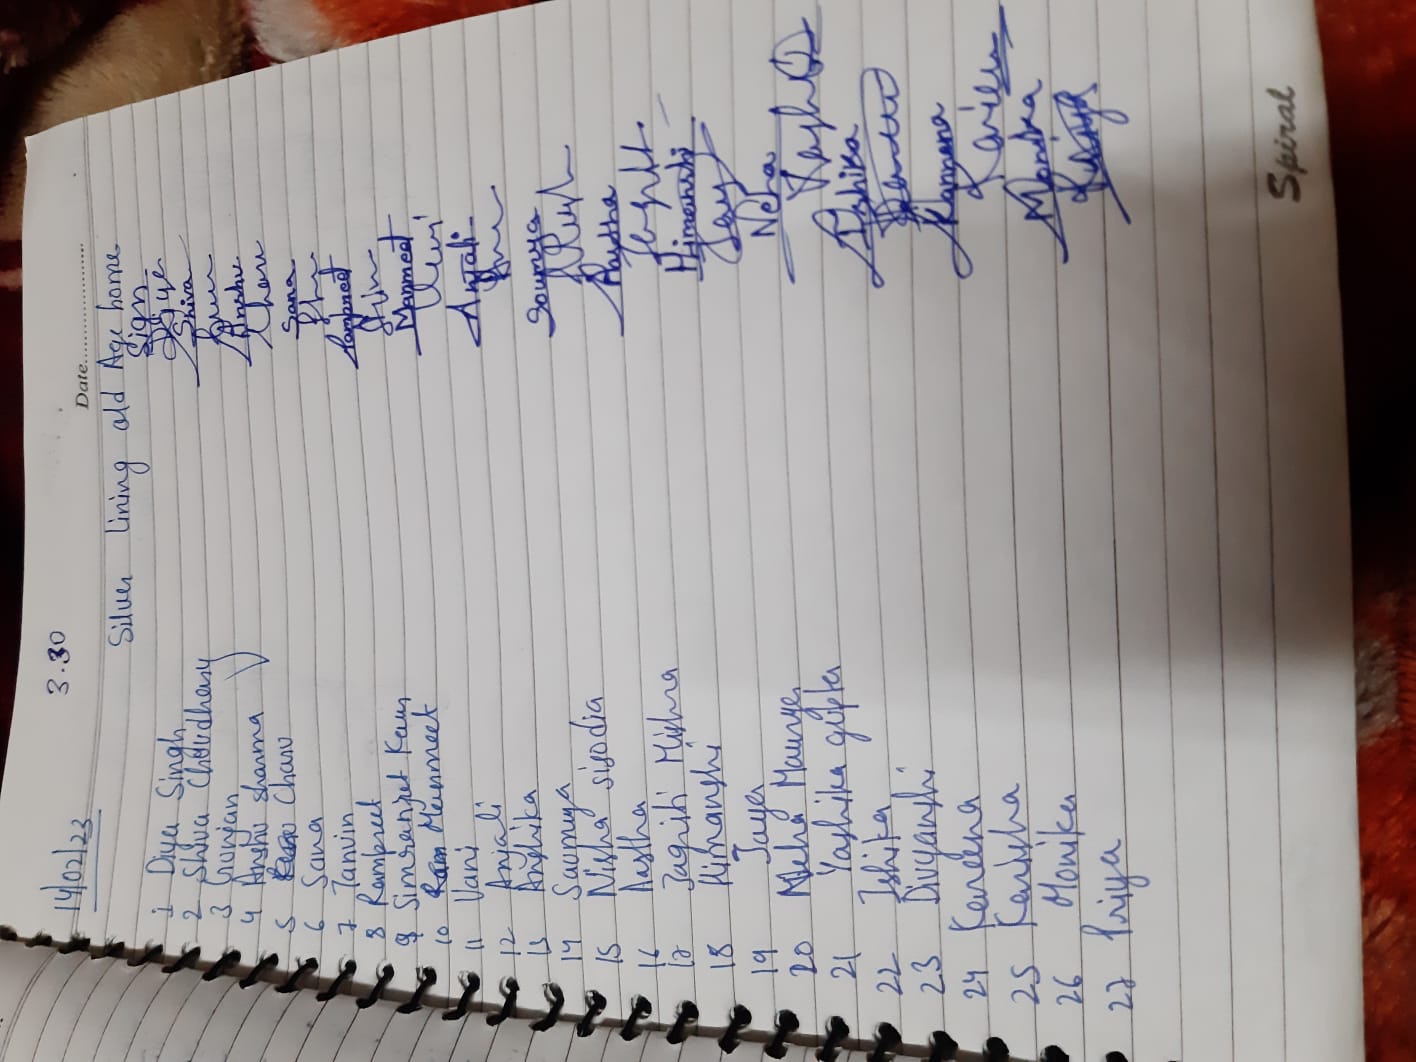 14/02/23 3.30 Date
Silver Lining old Age home
Sign
1 Diya Singh Diya
2 Shiva Choudhary Shiva
3 Gunjan
4 Anshu Sharma Anshu
5 Charu Charu
6 Sana Sana
7 Tanvin
8 Rampreet Rampreet
9 Simranjet Kaur Sim
10 Manmeet Manmeet
11 Vani Vani
12 Anjali Anjali
13 Anshika
14 Saumya Soumya
15 Nisha sisodia
16 Aastha Aastha
17 Jagriti Mishra
18 Himanshi Himanshi
19 Jaya Jaya
20 Neha Maurya Neha
21 Yashika gupta
22 Ishika Ishika
23 Divyanshi
24 Kareena Kareena
25 Kanishka
26 Monika Monika
27 Priya
Spiral